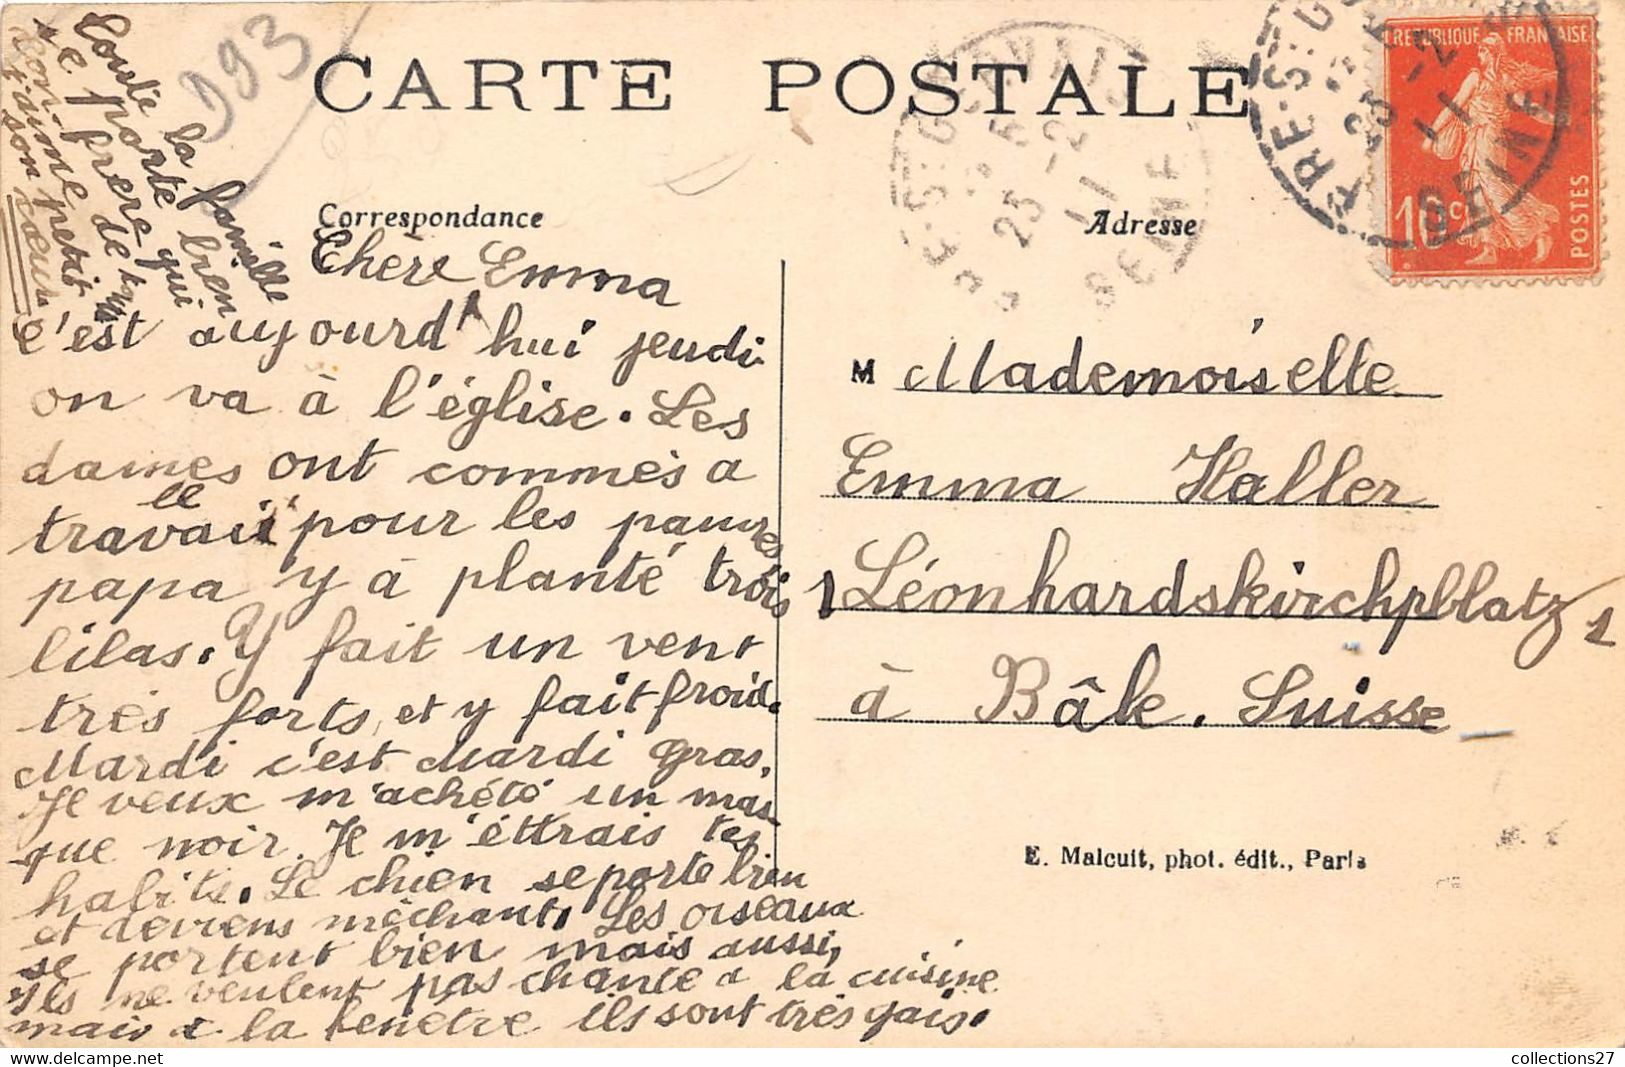 CARTE POSTALE
Correspondance
Adresse
Chère Emma
c'est aujourd'hui jeudi
on va à l'église. Les
dames ont commes a
travaille pour les pauvres
papa y a planté trois
lilas. Y fait un vent
très forts, et y fait froid.
Mardi c'est Mardi gras.
Je veux m'achété un mas
que noir. Je m'éttrais tes
habits. Le chien se porte bien
et deviens méchant. Les oiseaux
se portent bien mais aussi,
ils ne veulent pas chante a la cuisine
mais a la fenetre ils sont très gais.
Toute la famille
se porte bien
frere qui
t'aime de tout
son petit
cœur
193
M Mademoiselle
Emma Haller
1 Léonhardskirchpllatz 1
à Bâle. Suisse
E. Malcuit, phot. édit., Paris
REPUBLIQUE FRANÇAISE
10 c
POSTES
PRE-St-G
25 -2
11
SEINE
PRE-St-GERVAIS
25 -2
11
SEINE
collections27